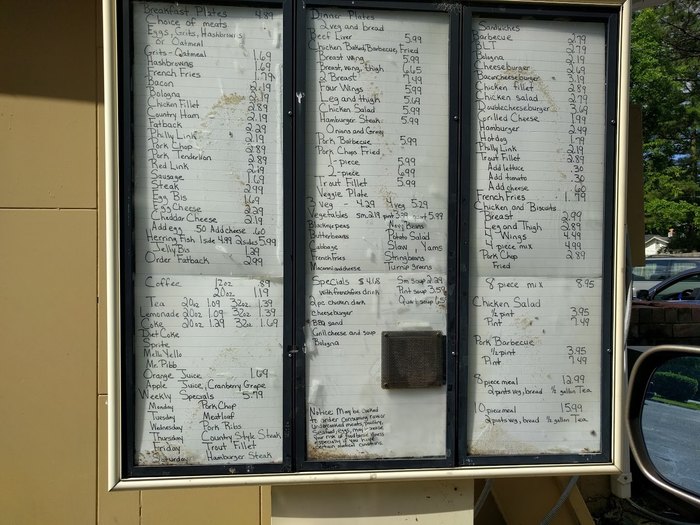 Breakfast Plates 4.89
Choice of meats
Eggs, Grits, Hashbrowns
or Oatmeal
Grits - Oatmeal 1.69
Hashbrowns 1.69
French Fries 1.79
Bacon 2.19
Bologna 2.19
Chicken Fillet 2.89
Country Ham 2.19
Fatback 2.29
Philly Link 2.19
Pork Chop 2.89
Pork Tenderlion 2.89
Red Link 2.19
Sausage 1.69
Steak 2.99
Egg Bis 1.69
Egg Cheese 2.29
Cheddar Cheese 2.19
Add egg .50 Add cheese .60
Herring Fish 1 side 4.99 2 sides 5.99
Jelly Bis 1.29
Order Fatback 2.99
Coffee 12oz .89
20oz 1.19
Tea 20oz 1.09 32oz 1.39
Lemonade 20oz 1.09 32oz 1.39
Coke 20oz 1.29 32oz 1.69
Diet Coke
Sprite
Mello Yello
Mr. Pibb
Orange Juice 1.69
Apple Juice, Cranberry Grape
Weekly Specials 5.79
Monday Pork Chop
Tuesday Meatloaf
Wednesday Pork Ribs
Thursday Country Style Steak
Friday Trout Fillet
Saturday Hamburger Steak
Dinner Plates
2 veg and bread
Beef Liver 5.99
Chicken Baked, Barbecue, Fried
Breast wing 5.99
Breast, wing, thigh 6.65
2 Breast 7.49
Four Wings 5.99
Leg and thigh 5.69
Chicken Salad 5.99
Hamburger Steak 5.99
Onions and Gravy
Pork Barbecue 5.99
Pork Chops Fried
1-piece 5.99
2-piece 6.99
Trout Fillet 5.99
Veggie Plate
3 veg - 4.29 4 veg 5.29
Vegetables sm 2.19 pint 3.99 quart 5.99
Blackeye peas Navy Beans
Butterbeans Potato Salad
Cabbage Slaw, Yams
French Fries Stringbeans
Macaroni and cheese Turnip Greens
Specials $4.68 Sm soup 2.29
with french fries drink Pint soup 3.59
2 pc chicken dark Quart soup
Cheeseburger
BBQ sand
Grill cheese and soup
Bologna
Notice: May be cooked
to order. Consuming raw or
undercooked meats, poultry,
seafood, eggs, may increase
your risk of food borne illness
especially if you have
certain medical conditions.
Sandwiches
Barbecue 2.79
BLT 2.79
Bologna 2.19
Cheeseburger 2.69
Baconcheeseburger 3.19
Chicken fillet 2.89
Chicken salad 2.79
Doublecheeseburger 3.69
Grilled Cheese 1.99
Hamburger 2.49
Hotdog 1.79
Philly Link 2.19
Trout Fillet 2.89
Add lettuce 30
Add tomato 30
Add cheese 60
French Fries 1.79
Chicken and Biscuits
Breast 2.99
Leg and Thigh 2.89
4 Wings 4.49
4 piece mix 4.99
Pork Chop 2.89
Fried
8 piece mix 8.95
Chicken Salad
½ pint 3.95
Pint 7.49
Pork Barbecue
½-pint 3.95
Pint 7.49
8 piece meal 12.99
2 pints veg, bread ½ gallon Tea
10 piece meal 15.99
2 pints veg, bread ½ gallon Tea